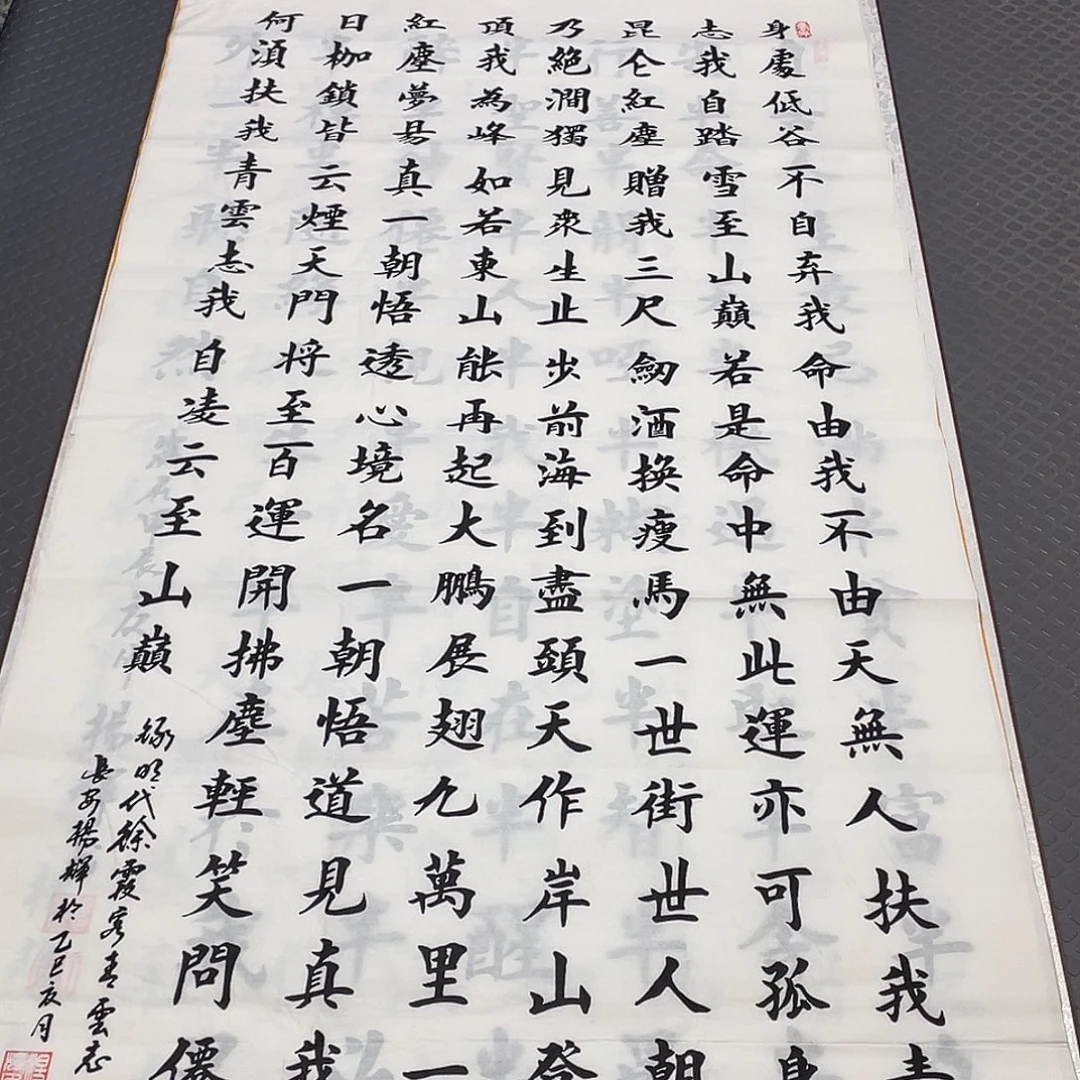 身處低谷不自弃我命由我不由天無人扶我青
志我自踏雪至山巔若是命中無此運亦可孤身
昆仑紅塵贈我三尺劒酒換瘦馬一世街世人朝
乃絕澗獨見衆生止步前海到盡頭天作岸山登
頂我為峰如若東山能再起大鵬展翅九萬里一
紅塵夢易真一朝悟透心境名一朝悟道見真我
日枷鎖皆云煙天門将至百運開拂塵輕笑問僊
何須扶我青雲志我自凌云至山巔
録明代徐霞客青雲志
長安楊輝於乙巳亥月